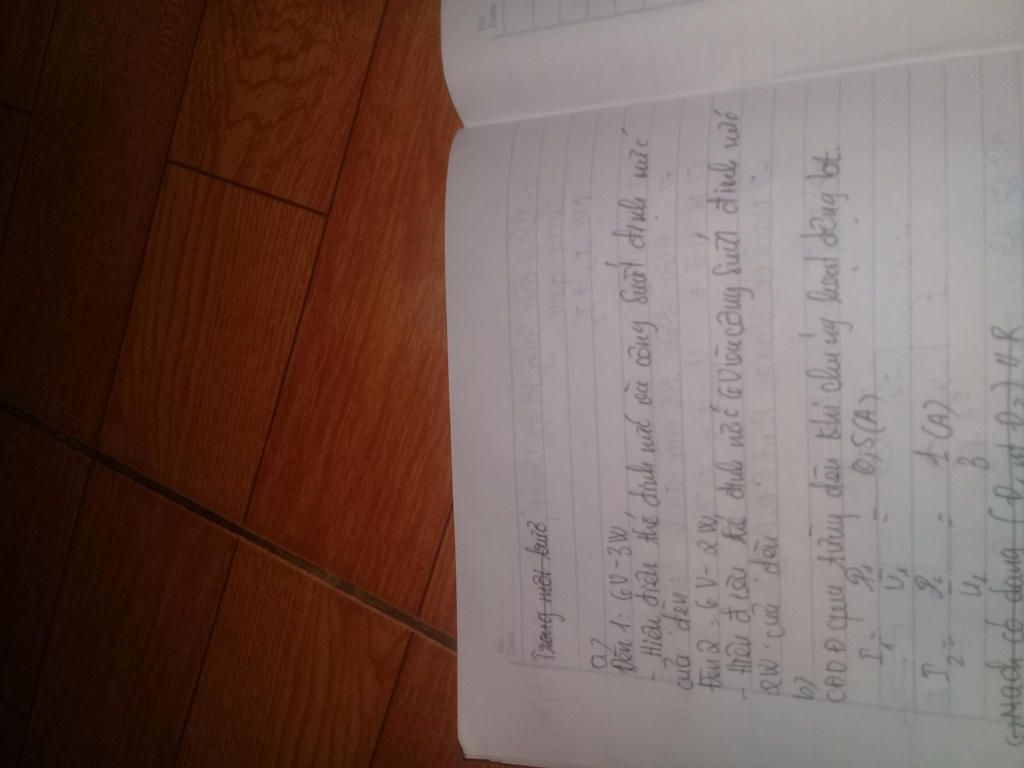 No.
Date
No.
Date
Trong mỗi trườ
a)
Đèn 1: 6V-3W
- Hiệu điện thế định mức và công suất định mức
của đèn
Đèn 2: 6V-2W
- Hiệu điện thế định mức 6V và công suất định mức
2W của đèn
b)
CĐDĐ qua từng đèn khi chúng hoạt động bt.
I₁ = P₁ / U₁ = 0,5(A)
I₂ = P₂ / U₂ = 1/3 (A)
c) mạch có dạng (Đ₁ nt Đ₂) // R